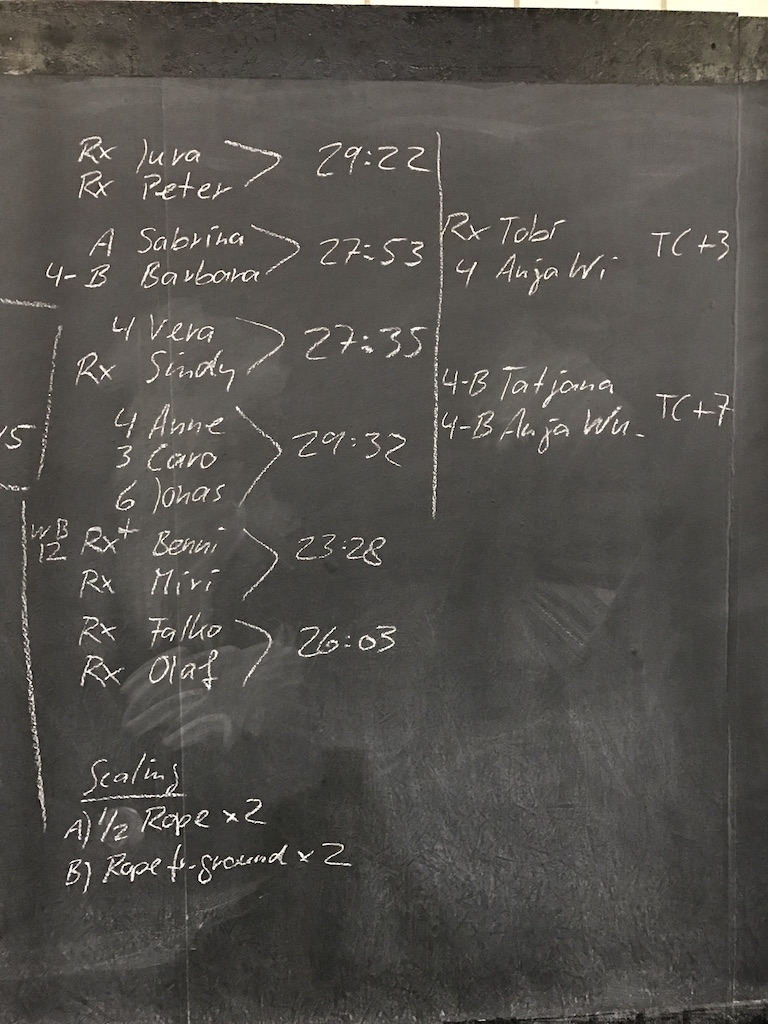 Rx Jura
Rx Peter
29:22
A Sabrina
4-B Barbara
27:53
4 Vera
Rx Sindy
27:35
4 Anne
3 Caro
6 Jonas
29:32
WB
12 Rx+ Benni
Rx Miri
23:28
Rx Falko
Rx Olaf
26:03
Rx Tobi
4 Anja Wi
TC+3
4-B Tatjana
4-B Anja Wu.
TC+7
Scaling
A) 1/2 Rope x 2
B) Rope fr. ground x 2